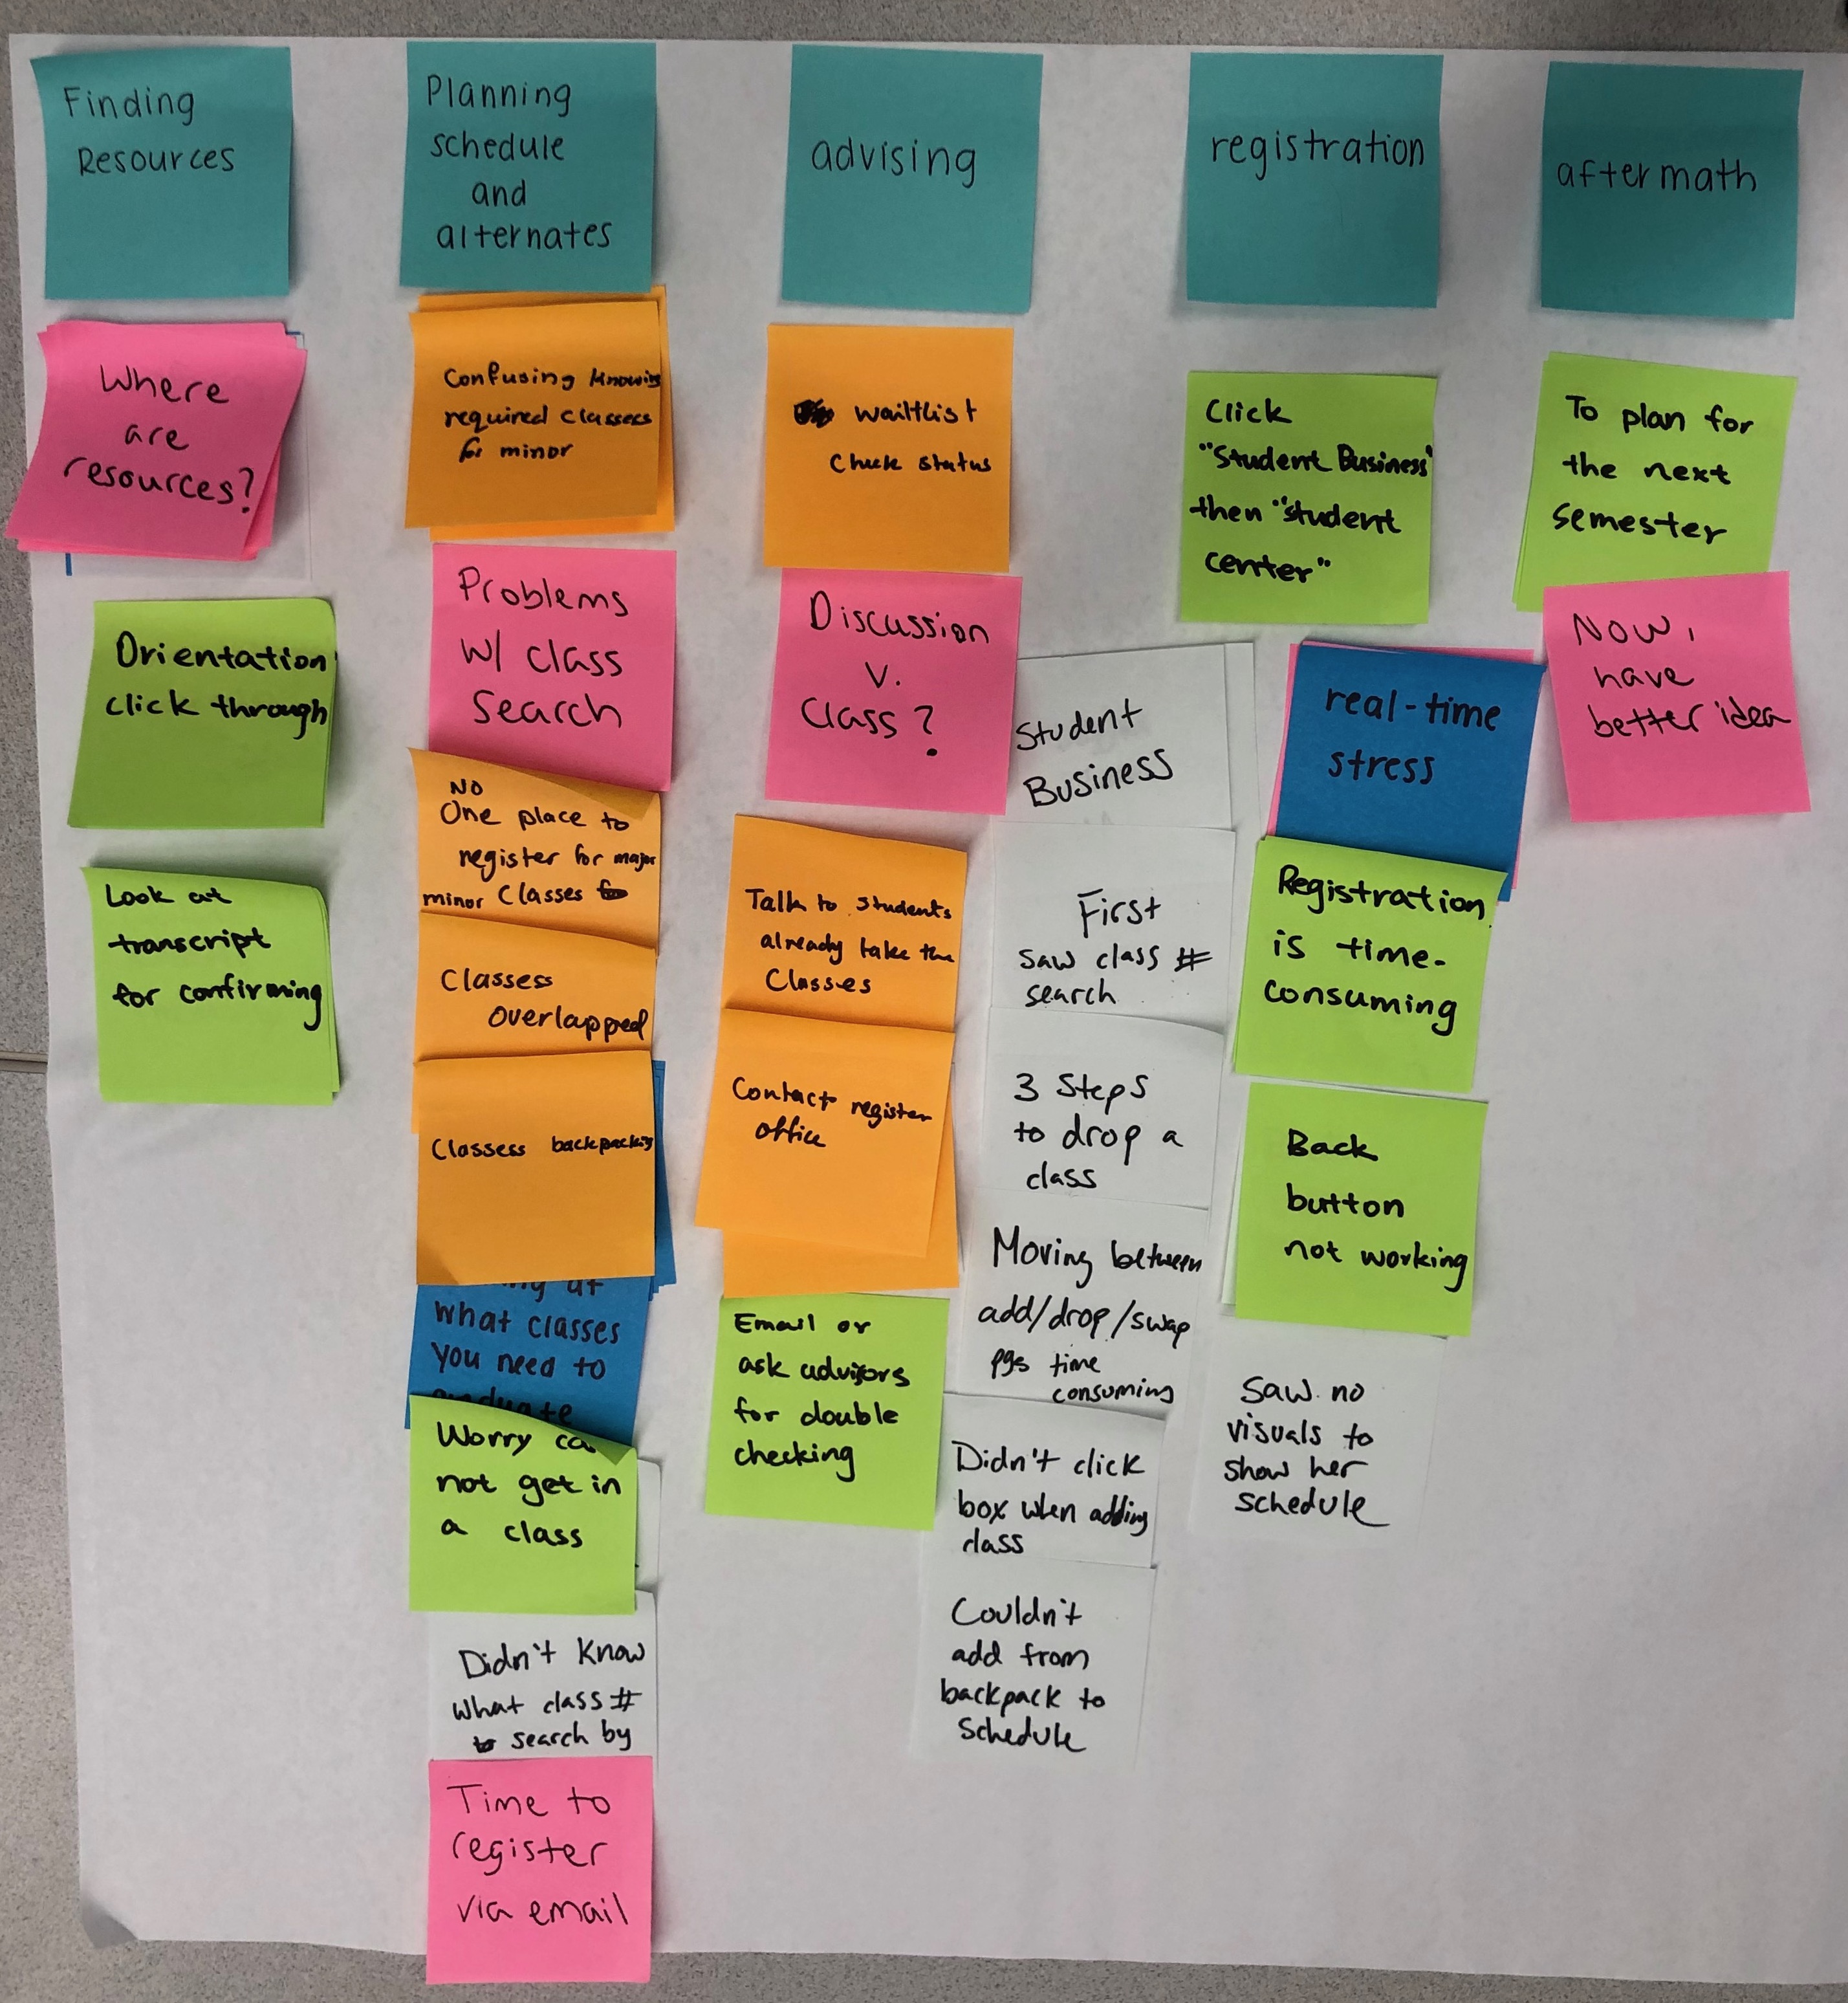 Finding
Resources
Planning
schedule
and
alternates
advising
registration
aftermath
Where
are
resources?
Orientation
click through
Look at
transcript
for confirming
Confusing knowing
required classess
for minor
Problems
w/ class
Search
NO
One place to
register for major
minor Classes
Classess
overlapped
Classess backpacking
at
what classes
you need to
Worry
not get in
a class
Didn't know
what class #
to search by
Time to
register
via email
waitlist
Check status
Discussion
v.
Class?
Talk to students
already take the
Classes
Contact register
office
Email or
ask advisors
for double
checking
Student
Business
First
saw class #
search
3 Steps
to drop a
class
Moving between
add/drop/swap
pgs time
consuming
Didn't click
box when adding
class
Couldn't
add from
backpack to
schedule
Click
"Student Business"
then "student
center"
real-time
stress
Registration
is time-
consuming
Back
button
not working
Saw no
visuals to
show her
schedule
To plan for
the next
semester
Now,
have
better idea